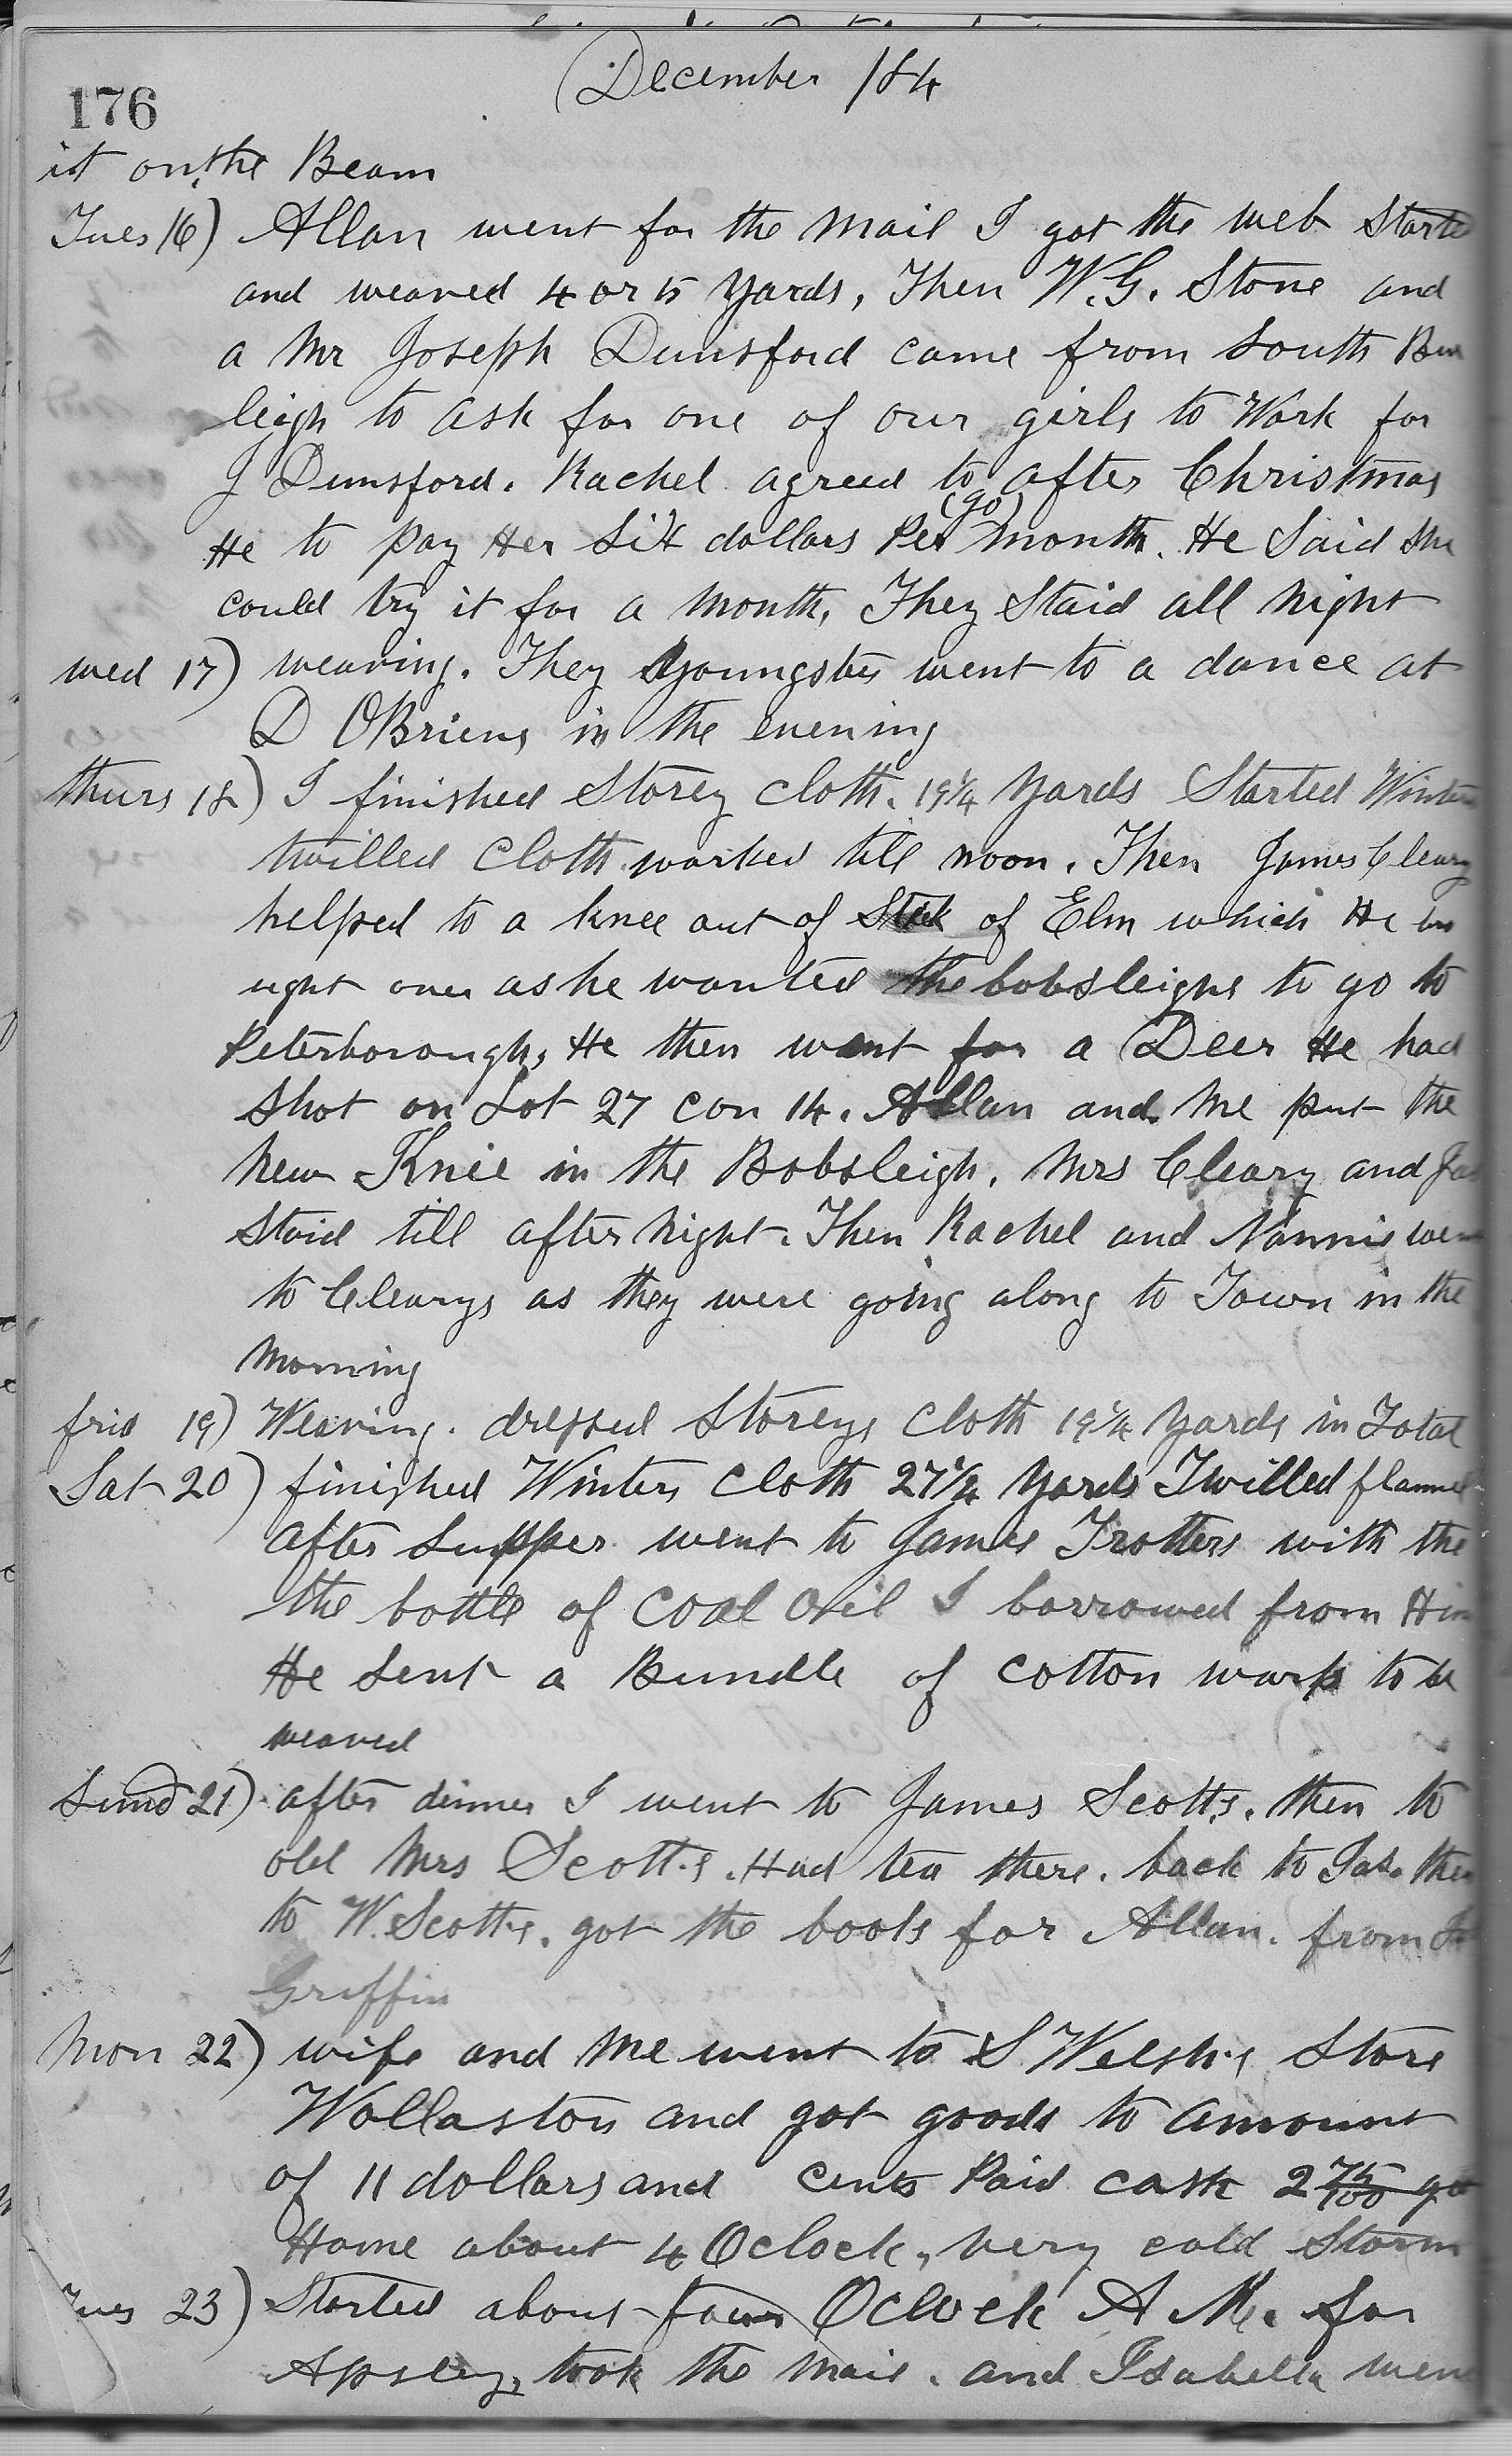 December /84
176
it on the Beam
Tues 16) Allan went for the Mail I got the web Starte
and weaved 4 or 5 Yards, Then W.G. Stone and
a Mr Joseph Dunsford came from South Bur
leigh to ask for one of our girls to Work for
J Dunsford. Rachel agreed to (go) after Christmas
He to pay Her Six dollars Per Month. He Said She
could try it for a Month, They Staid all Night
Wed 17) weaving. They Youngsters went to a dance at
D OBriens in the evening
Thurs 18) I finished Storey Cloth. 19¼ Yards Started Winters
twilled Cloth worked till noon. Then James Cleary
helped to a knee out of Stick of Elm which He bro
ught over as he wanted the bobsleighs to go to
Peterborough, He then went for a Deer He had
Shot on Lot 27 con 14. Allan and Me put the
New Knee in the Bobsleigh. Mrs Cleary and Jas
Staid till after Night. Then Rachel and Nannie wen
to Clearys as they were going along to Town in the
Morning
frid 19) Weaving. dressed Storeys Cloth 19¼ Yards in Total
Sat 20) finished Winters Cloth 27¼ Yards Twilled flannel
After Supper went to James Trotters with the
the bottle of Coal Oil I borrowed from Him
He Sent a Bundle of Cotton warp to be
weaved
Sund 21) after dinner I went to James Scotts. then to
old Mrs Scotts. Had tea there. back to Jas. then
to W. Scotts. got the boots for Allan. from
Griffin
Mon 22) wife and Me went to S Welsh's Store
Wollaston and got goods to amount
of 11 dollars and cents Paid cash 2 75/100 got
Home about 4 Oclock, very cold Storm
Tues 23) Started about four Oclock A M. for
Apsley, took the Mail. and Isabella wen